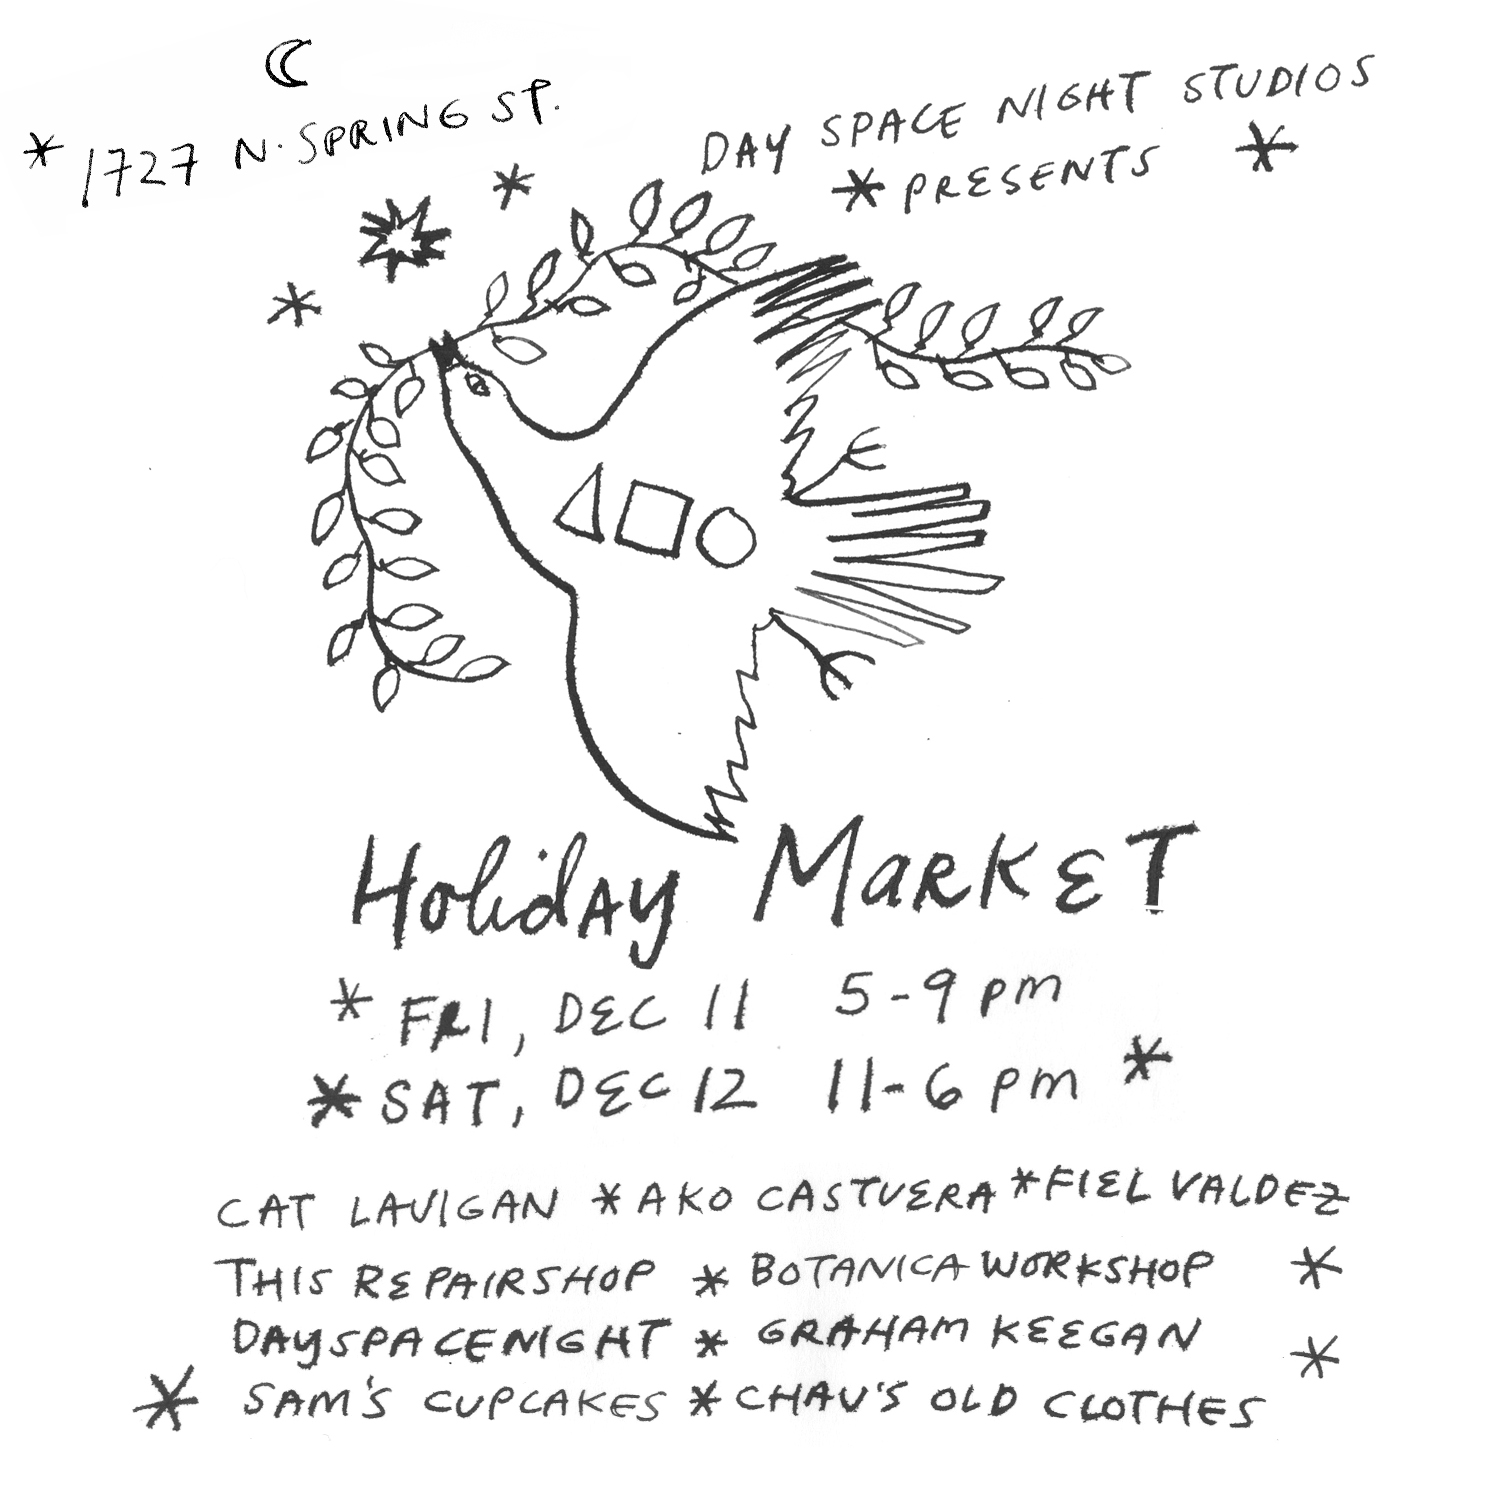 1727 N. SPRING ST.
DAY SPACE NIGHT STUDIOS
* PRESENTS *
Holiday MARKET
* FRI, DEC 11 5-9 pm
* SAT, DEC 12 11-6 pm *
CAT LAVIGAN * AKO CASTUERA * FIEL VALDEZ
THIS REPAIRSHOP * BOTANICA WORKSHOP *
DAYSPACENIGHT * GRAHAM KEEGAN *
* SAM'S CUPCAKES * CHAU'S OLD CLOTHES